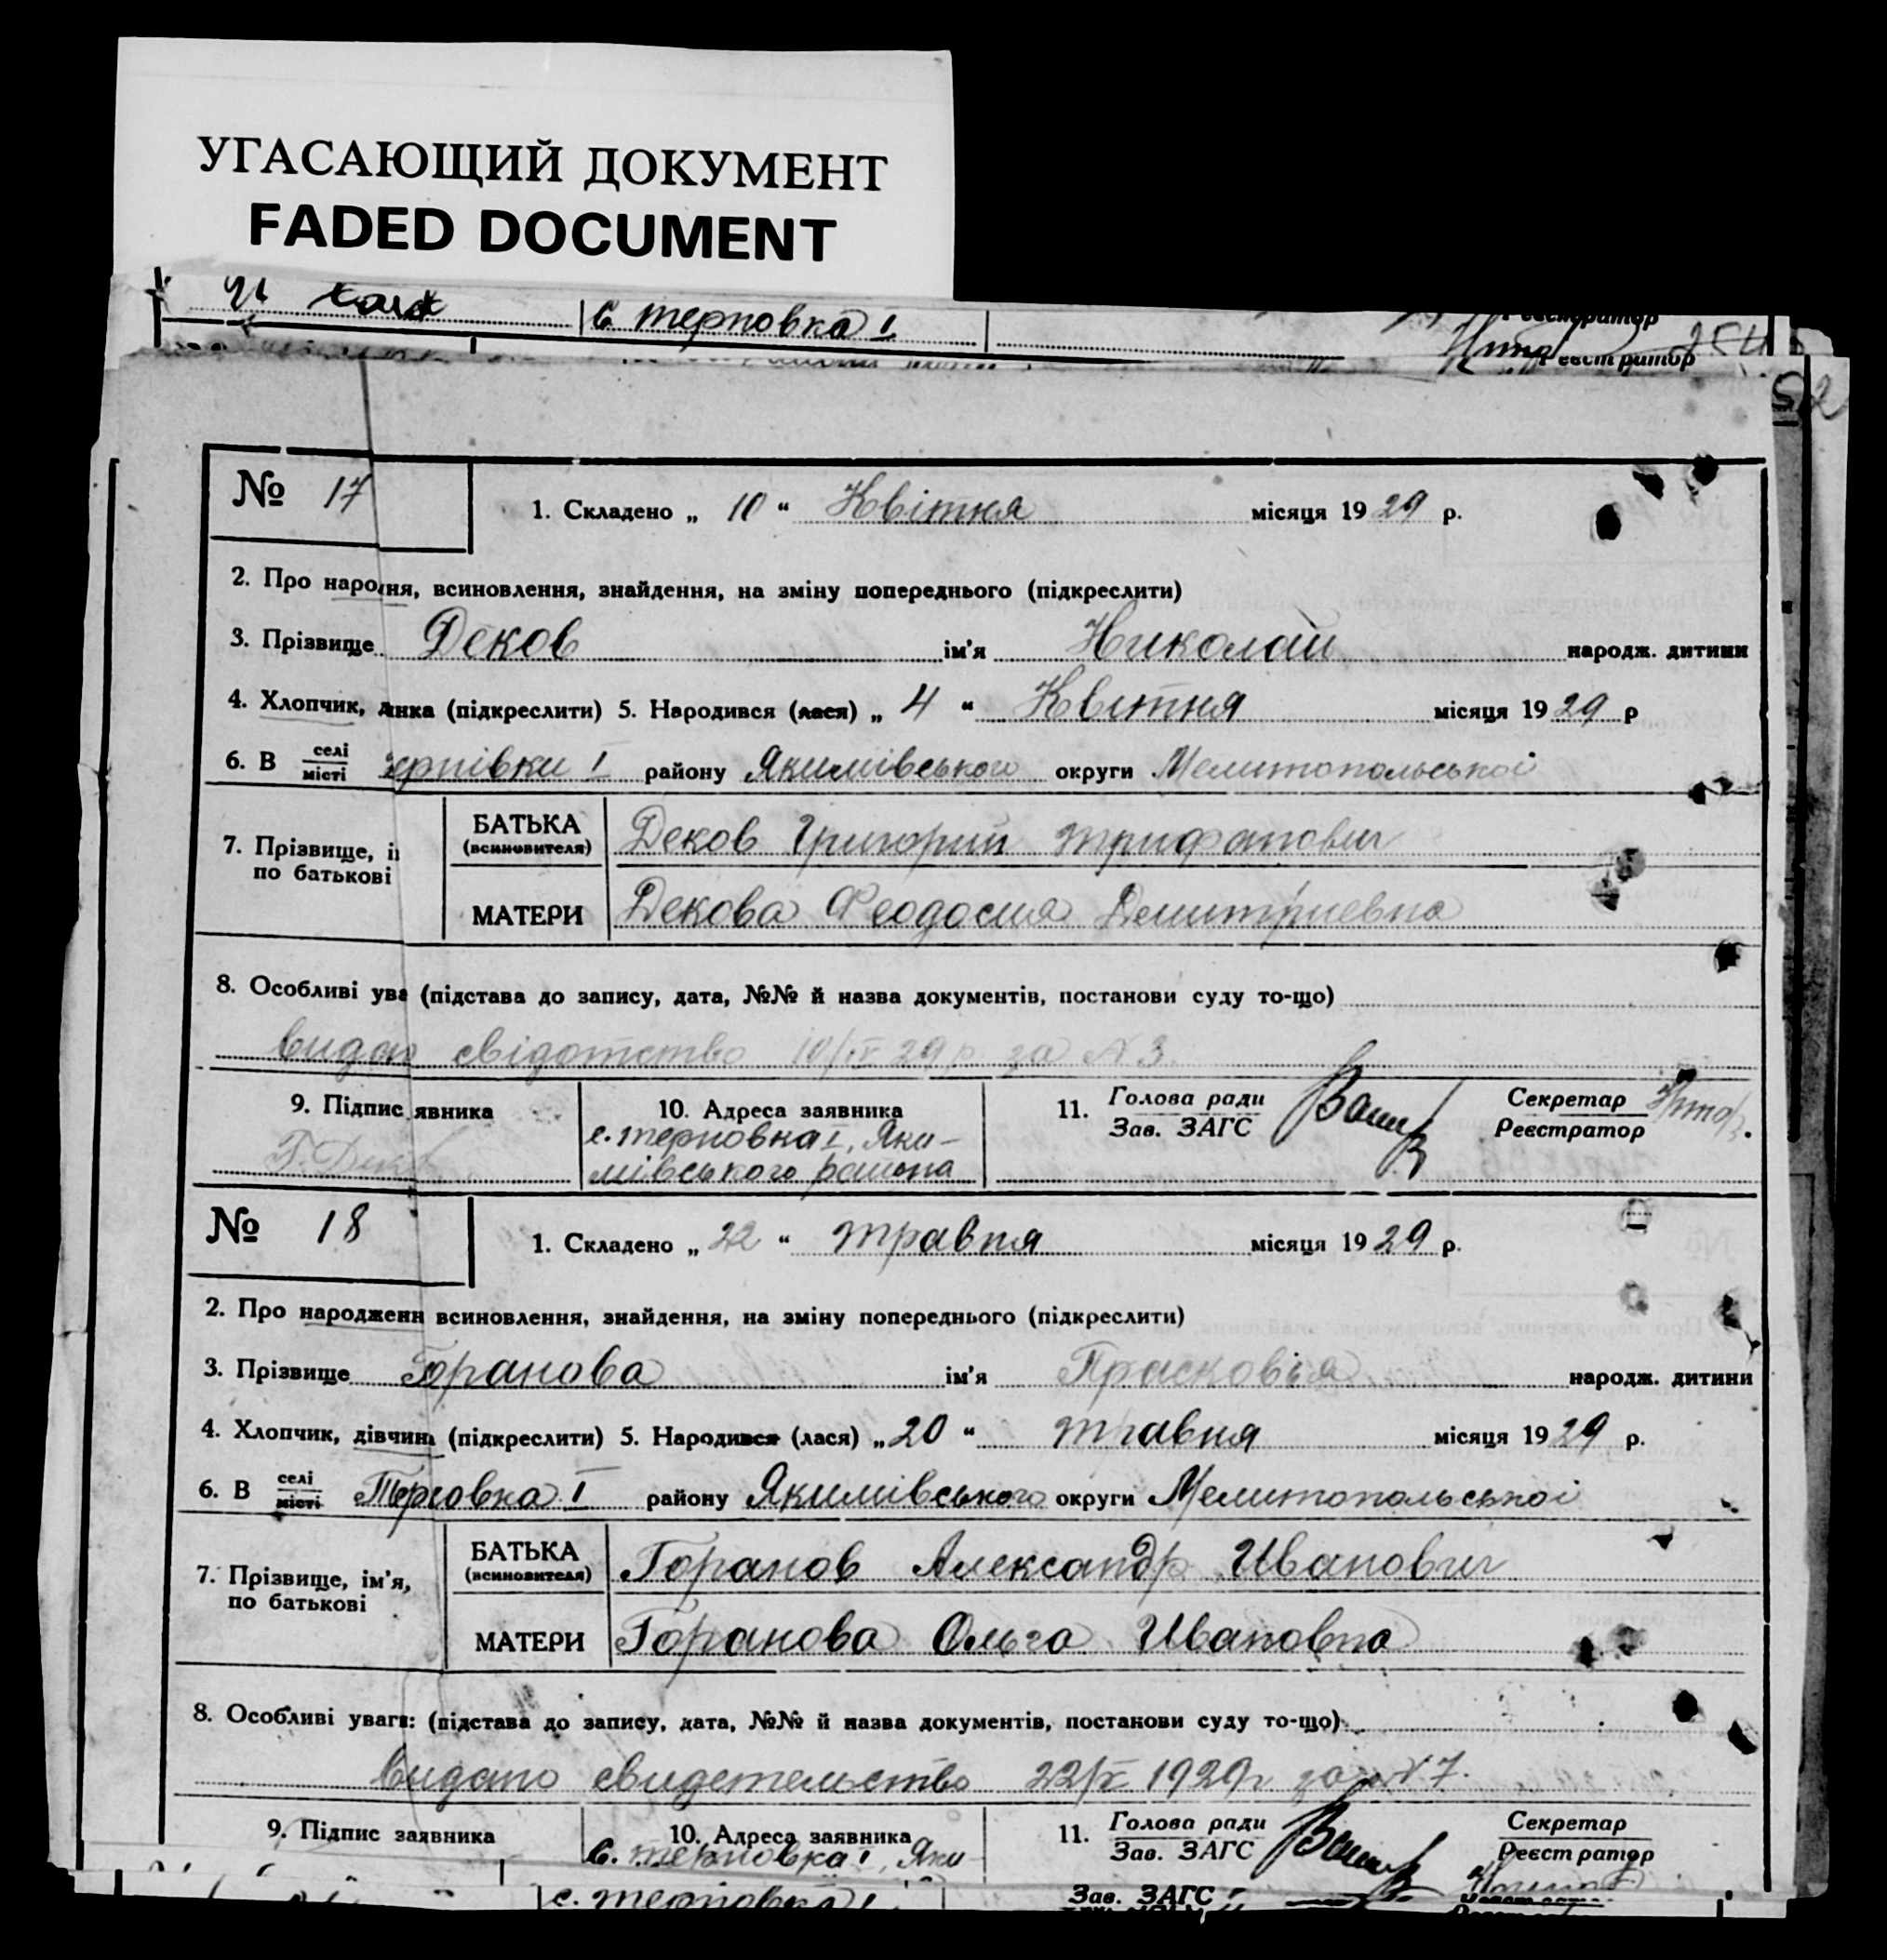 УГАСАЮЩИЙ ДОКУМЕНТ
FADED DOCUMENT
с терновка І
Реєстратор
№ 17
1. Складено „ 10 “ Квітня місяця 1929 р.
2. Про народ ня, всиновлення, знайдення, на зміну попереднього (підкреслити)
3. Прізвище Деков ім'я Николай народж. дитини
4. Хлопчик, д нка (підкреслити) 5. Народився (лася) „ 4 “ Квітня місяця 1929 р
6. В селі місті Терпівки І району Якимівського округи Мелитопольської
7. Прізвище, і по батькові
БАТЬКА (всиновителя) Деков Григорий Трифанович
МАТЕРИ Декова Феодосия Демитриевна
8. Особливі ува (підстава до запису, дата, №№ й назва документів, постанови суду то-що)
видан свідотство 10/IV 29 р за N 3.
9. Підпис явника
10. Адреса заявника
11. Голова ради Зав. ЗАГС
Секретар Реєстратор
Г. Деков
с. терновка І, Яки-
мівського района
№ 18
1. Складено „ 22 “ травня місяця 1929 р.
2. Про народженн всиновлення, знайдення, на зміну попереднього (підкреслити)
3. Прізвище Горанова ім'я Прасковія народж. дитини
4. Хлопчик, дівчин (підкреслити) 5. Народився (лася) „ 20 “ травня місяця 1929 р.
6. В селі місті Терновка І району Якимівського округи Мелитопольської
7. Прізвище, ім'я, по батькові
БАТЬКА (всиновителя) Горанов Александр Иванович
МАТЕРИ Горанова Ольга Ивановна
8. Особливі уваги: (підстава до запису, дата, №№ й назва документів, постанови суду то-що)
Видано свидетельство 22/V 1929 р за N 7.
9. Підпис заявника
10. Адреса заявника
11. Голова ради Зав. ЗАГС
Секретар Реєстратор
с. терновка І, Яки-
с. терновка І
Зав. ЗАГС